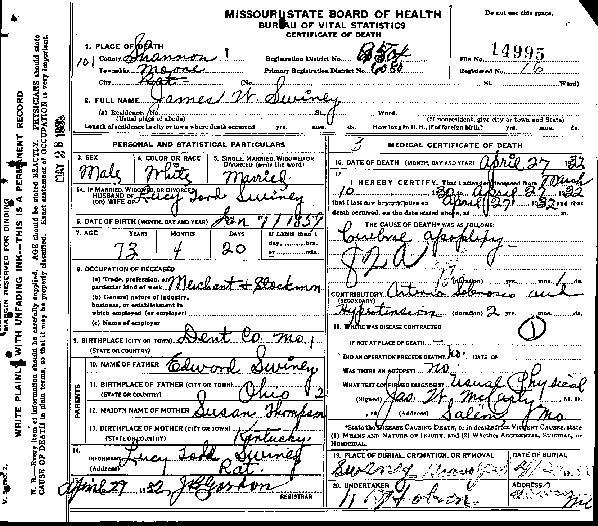 MISSOURI STATE BOARD OF HEALTH
BUREAU OF VITAL STATISTICS
CERTIFICATE OF DEATH
Do not use this space.
1. PLACE OF DEATH
County Shannon
Township Moore
City Rat
Registration District No.
Primary Registration District No.
File No. 14995
Registered No. 16
2. FULL NAME James W. Swiney
(a) Residence. No. St. Ward.
(Usual place of abode) (If nonresident, give city or town and State)
Length of residence in city or town where death occurred yrs. mos. ds. How long in U.S., if of foreign birth? yrs. mos. ds.
PERSONAL AND STATISTICAL PARTICULARS
3. SEX Male
4. COLOR OR RACE White
5. SINGLE, MARRIED, WIDOWED OR DIVORCED (write the word) Married
5A. IF MARRIED, WIDOWED, OR DIVORCED
HUSBAND OF
(OR) WIFE OF Lucy Todd Swiney
6. DATE OF BIRTH (MONTH, DAY AND YEAR) Jan 7 1859
7. AGE YEARS MONTHS DAYS If LESS than 1 day, hrs. or min.
73 4 20
8. OCCUPATION OF DECEASED
(a) Trade, profession, or particular kind of work Merchant & Stockman
(b) General nature of industry, business, or establishment in which employed (or employer)
(c) Name of employer
9. BIRTHPLACE (CITY OR TOWN) Dent Co. Mo.
(STATE OR COUNTRY)
PARENTS
10. NAME OF FATHER Edward Swiney
11. BIRTHPLACE OF FATHER (CITY OR TOWN) Ohio
(STATE OR COUNTRY)
12. MAIDEN NAME OF MOTHER Susan Thompson
13. BIRTHPLACE OF MOTHER (CITY OR TOWN)
(STATE OR COUNTRY) Kentucky
14. INFORMANT Lucy Todd Swiney
(Address) Rat
15. April 29 1932 J B Gordon
REGISTRAR
MEDICAL CERTIFICATE OF DEATH
16. DATE OF DEATH (MONTH, DAY AND YEAR) April 27
17. I HEREBY CERTIFY, That I attended deceased from
April 27
that I last saw alive on April 27
death occurred, on the date stated above, at
THE CAUSE OF DEATH WAS AS FOLLOWS:
Cerebral apoplexy
82a
CONTRIBUTORY
(SECONDARY)
Hypertension (duration) 2 yrs. mos. ds.
18. WHERE WAS DISEASE CONTRACTED
IF NOT AT PLACE OF DEATH
DID AN OPERATION PRECEDE DEATH? no DATE OF
WAS THERE AN AUTOPSY? no
WHAT TEST CONFIRMED DIAGNOSIS? usual Physical
(Signed) Jas W. McCarty
(Address) Salem Mo
19. PLACE OF BURIAL, CREMATION, OR REMOVAL DATE OF BURIAL
20. UNDERTAKER ADDRESS
MARGIN RESERVED FOR BINDING
WRITE PLAINLY, WITH UNFADING INK—THIS IS A PERMANENT RECORD
N. B.—Every item of information should be carefully supplied. AGE should be stated EXACTLY. PHYSICIANS should state
CAUSE OF DEATH in plain terms, so that it may be properly classified. Exact statement of OCCUPATION is very important.